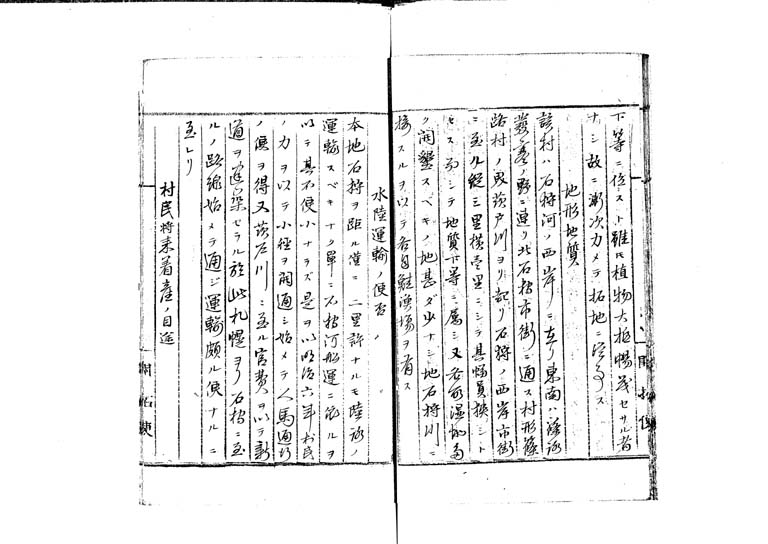 下等ニ位スト雖𪜈植物大抵暢茂セサル者
ナシ故ニ漸次力メテ拓地ニ従事ス
地形地質
該村ハ石狩河ノ西岸ニ在リ東南ハ篠路
發寒ノ野ニ連リ北石狩市街ニ通ス村形篠
路村ノ界茨戸川ヨリ起リ石狩ノ西岸市街
ニ至ル縦三里横壱里ニシテ其幅員狭シト
セス而シテ地質下等ニ属シ又谷前湿地多
ク開墾スベキノ地甚ダ少ナシ地石狩川ニ
接スルヲ以テ各自鮭漁場ヲ有ス
水陸運輸ノ便否
本地石狩ヲ距ル僅ニ二里許ナルモ陸路ノ
運輸スベキナク單ニ石狩河船運ニ依ルヲ
以テ其不便小ナラズ是ヲ以明治六年村民
ノ力ヲ以テ小径ヲ開通シ始メテ人馬通行
ノ便ヲ得又茨戸川ニ至ル官費ヲ以テ新
道ヲ建築セラル於此札幌ヨリ石狩ニ至
ルノ路線始メテ通ジ運輸頗ル便ナルニ
至レリ
村民将来着産ノ目途
開拓使